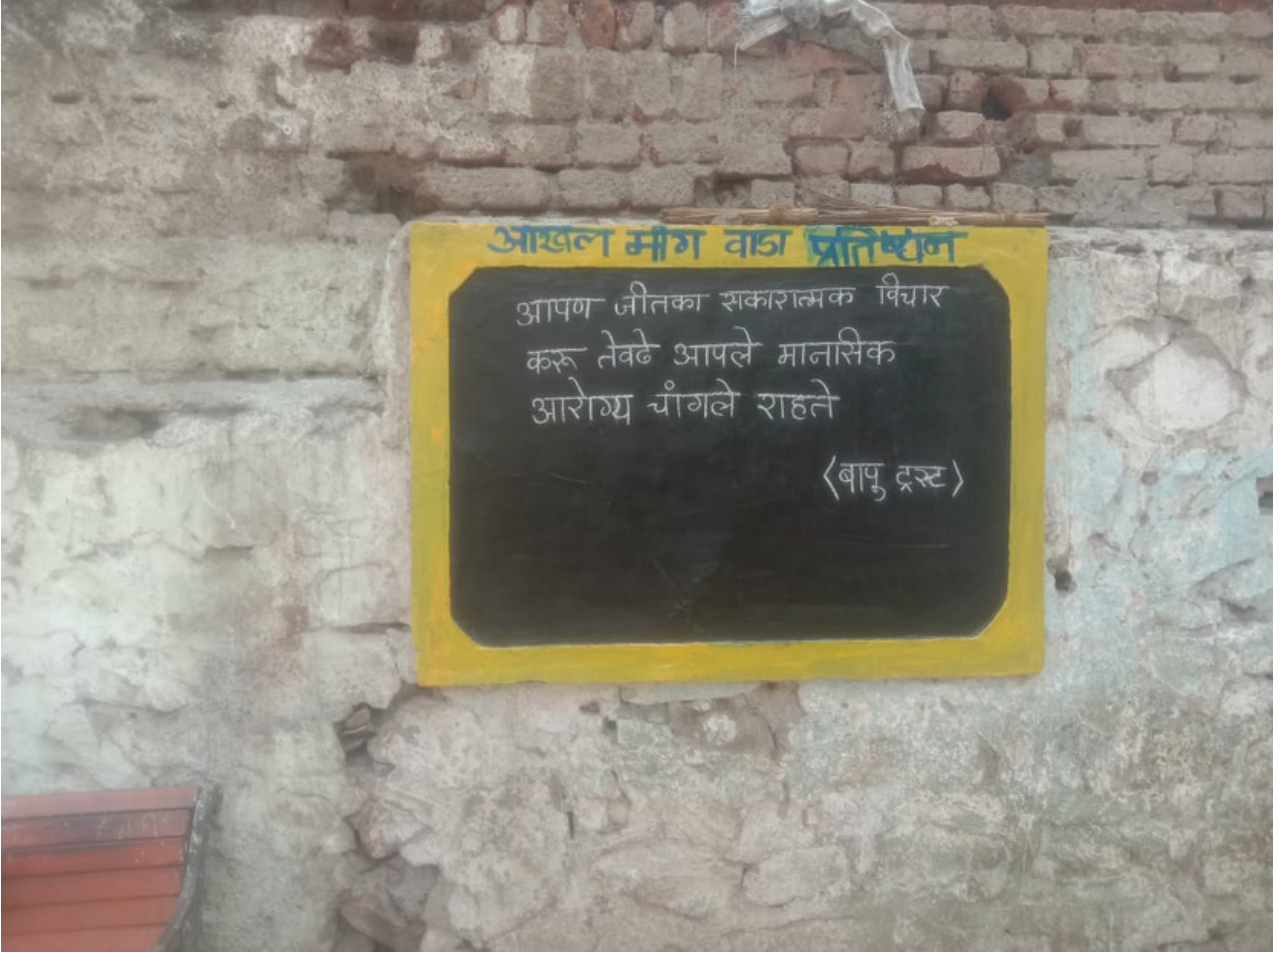 आखल माग वाडा प्रतिष्ठान
आपण जीतका सकारात्मक विचार
करू तेवढे आपले मानसिक
आरोग्य चांगले राहते
<बापु ट्रस्ट>